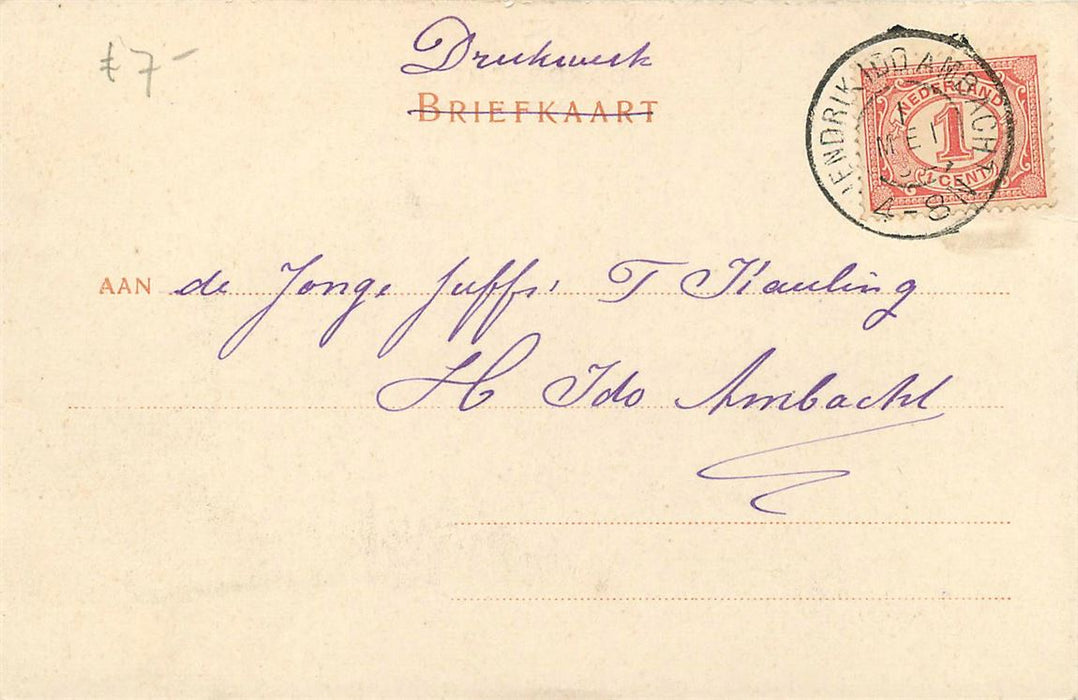 7-
Drukwerk
BRIEFKAART
HENDRIK IDO AMBACHT
MEI
4-8N
NEDERLAND
1
CENT
AAN de Jonge Juffr: T Kauling
H Ido Ambacht